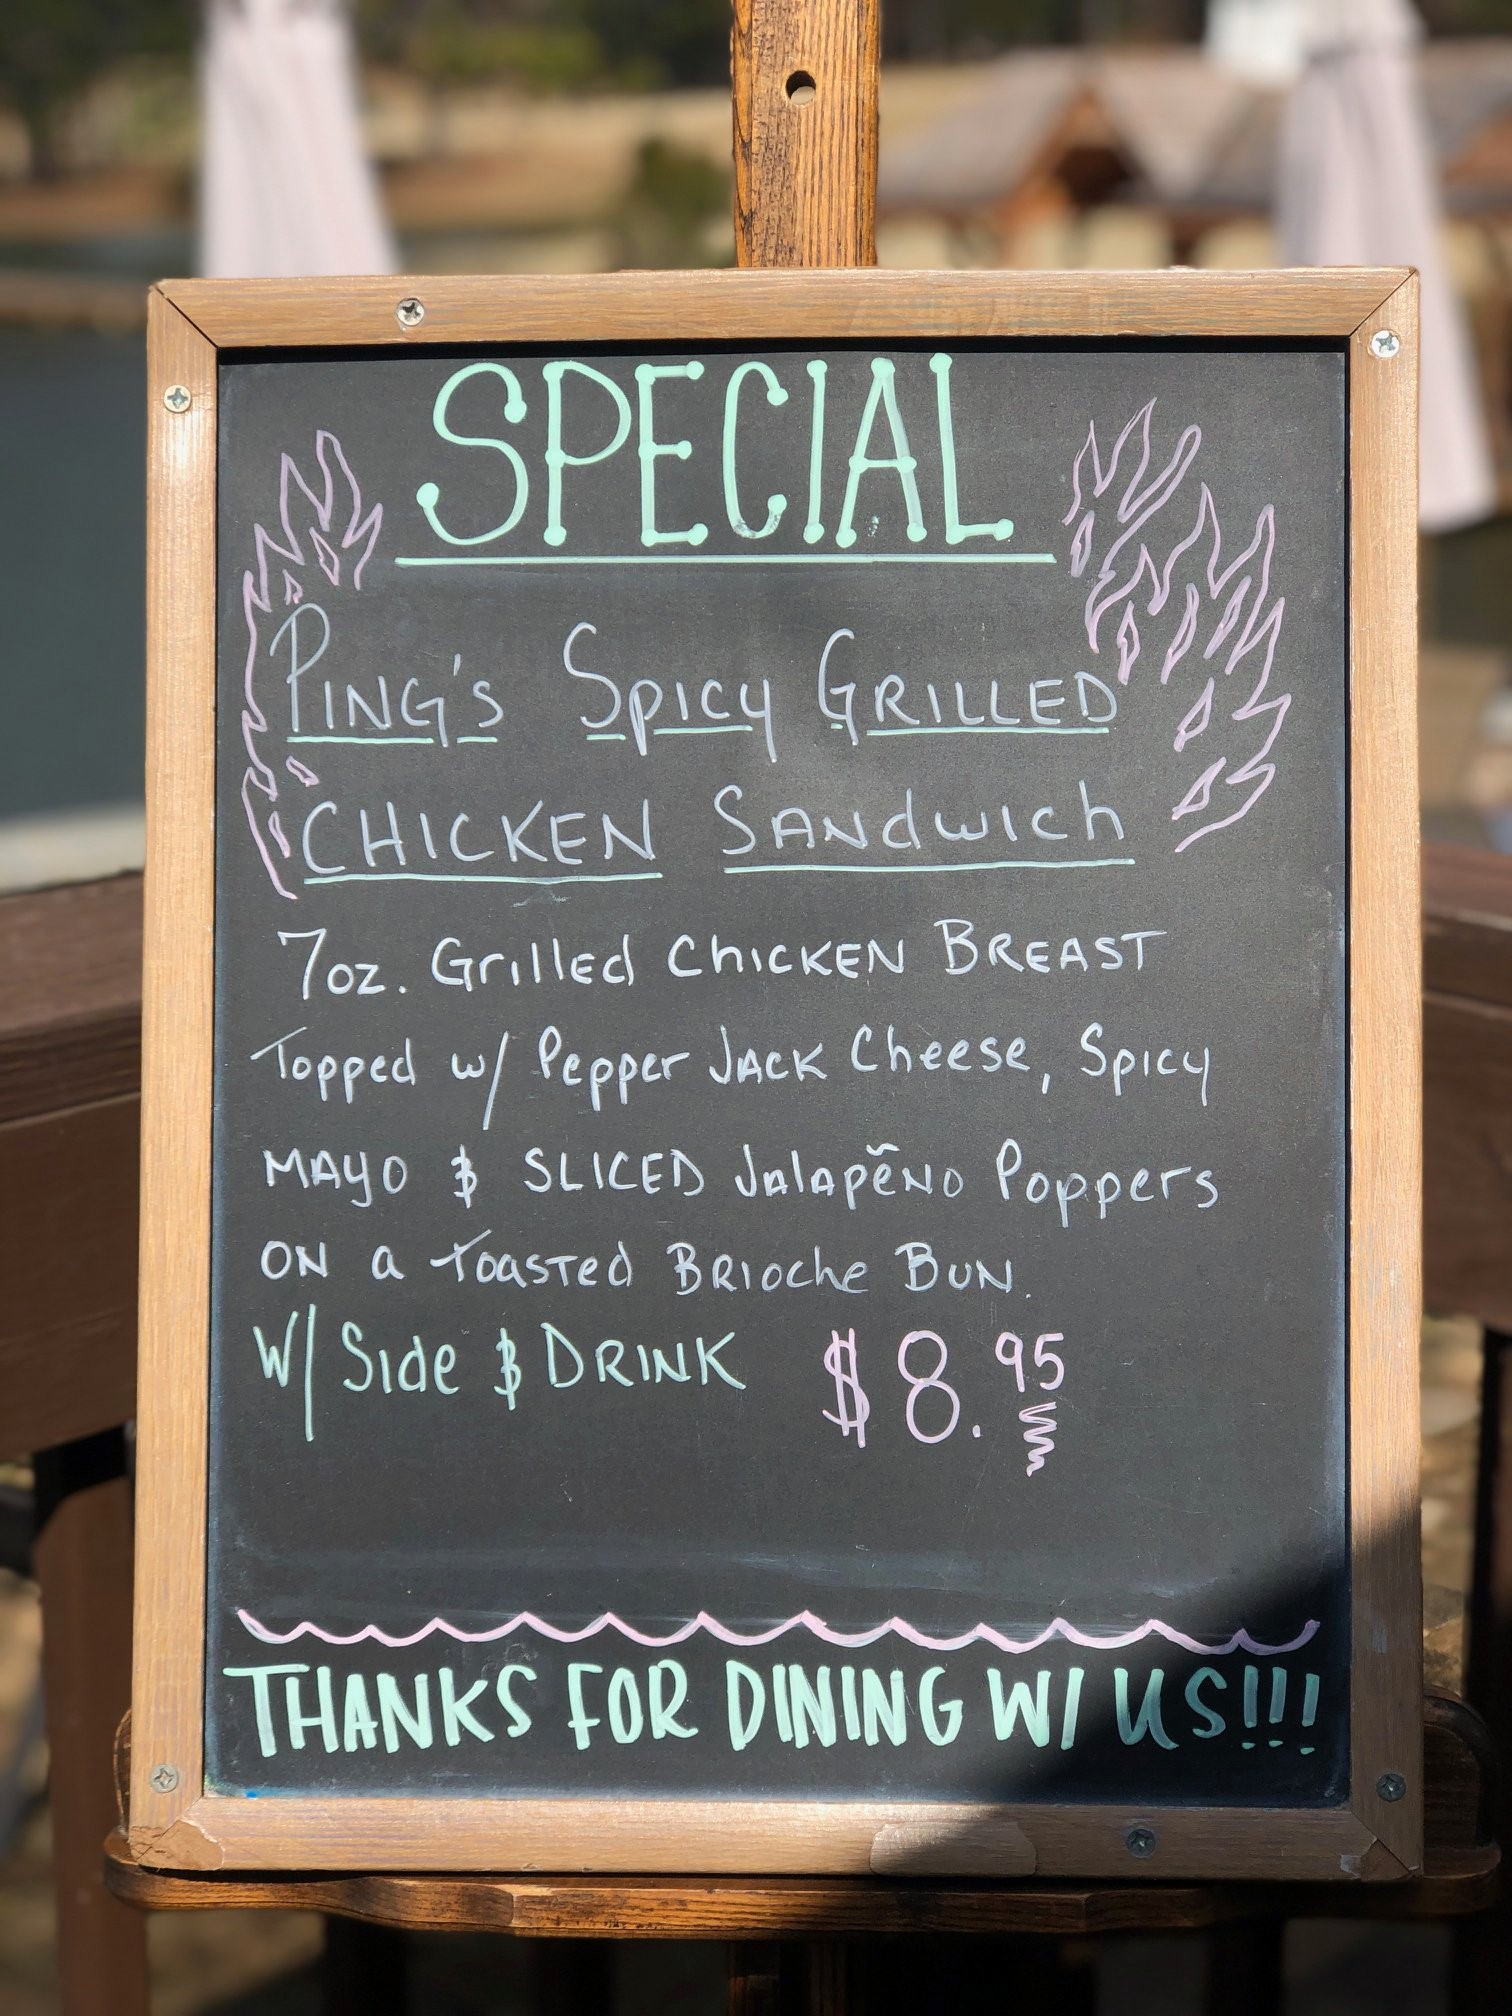 SPECIAL
PING'S SPICY GRILLED
CHICKEN SANdwich
7oz. Grilled ChICKEN BREAST
Topped w/ Pepper JACK Cheese, Spicy
MAYO & SLICED Jalapẽno Poppers
ON a toasted BRIoche BUN.
W/ Side & DRINK $8.95
THANKS FOR DINING W/ US!!!